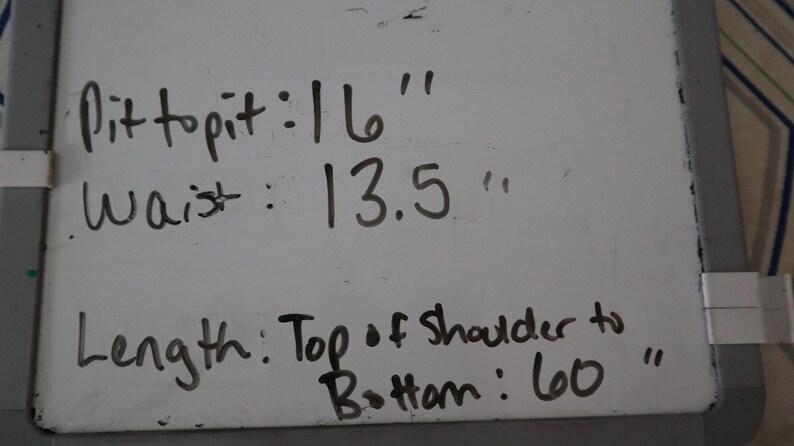 Pit to pit: 16"
Waist: 13.5"
Length: Top of Shoulder to
Bottom: 60"